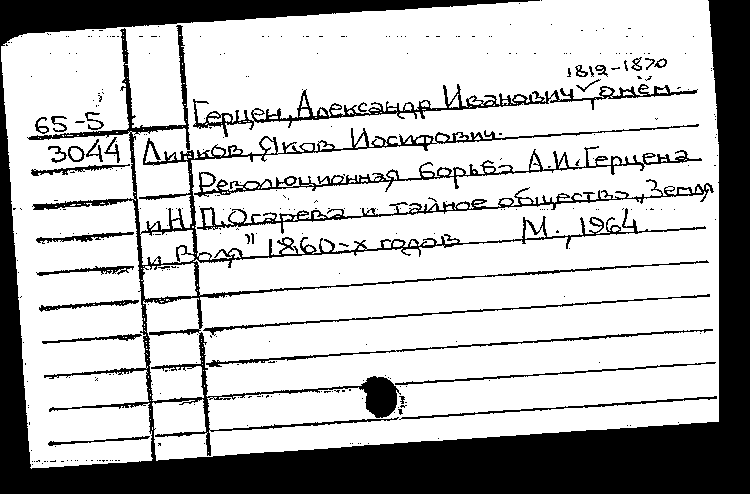 1812-1870
65-5 Герцен, Александр Иванович, о нём.
3044 Линков, Яков Иосифович.
Революционная борьба А.И. Герцена
и Н.П. Огарева и тайное общество „Земля
и Воля" 1860-х годов М., 1964.